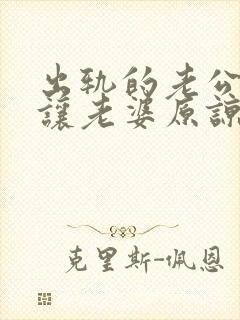 出轨的老公
讓老婆原諒
克里斯-佩恩